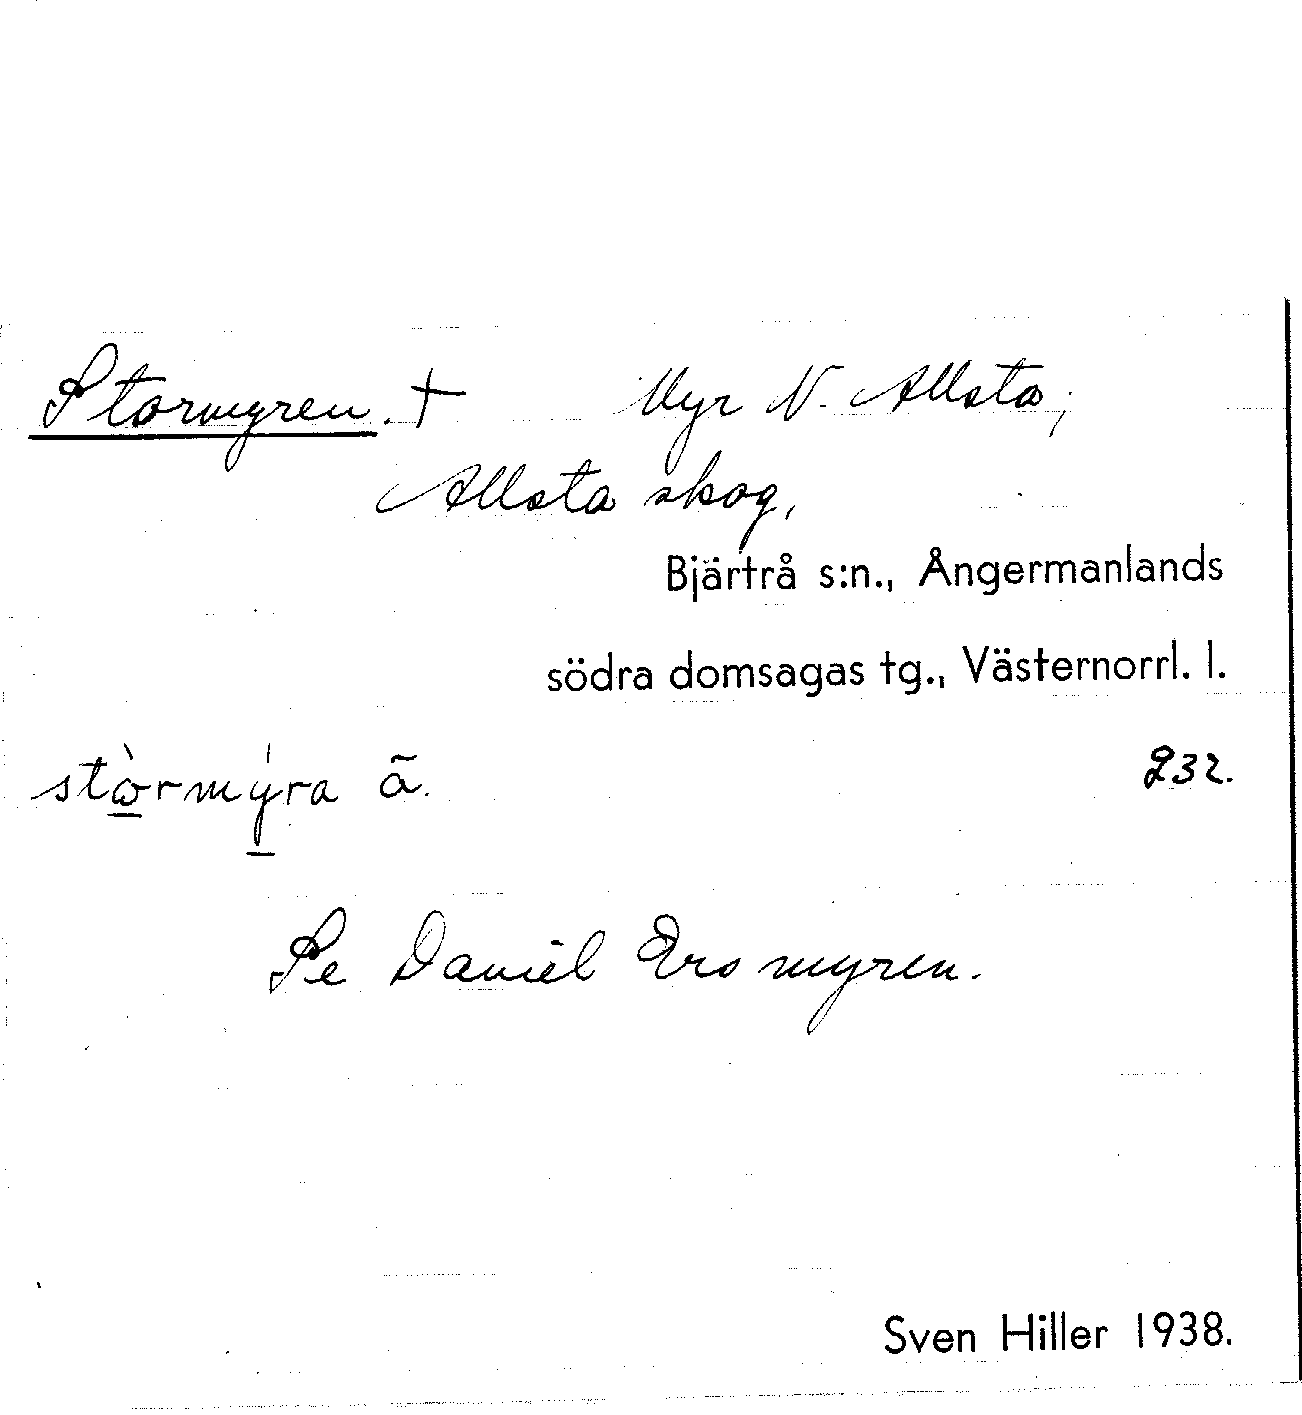 Stormyren. † Myr N. Allsta;
Allsta skog,
Bjärtrå s:n., Ångermanlands
södra domsagas tg., Västernorrl. l.
stὼrmy̍ra ã. 232.
Se Daniel Ersmyren.
Sven Hiller 1938.